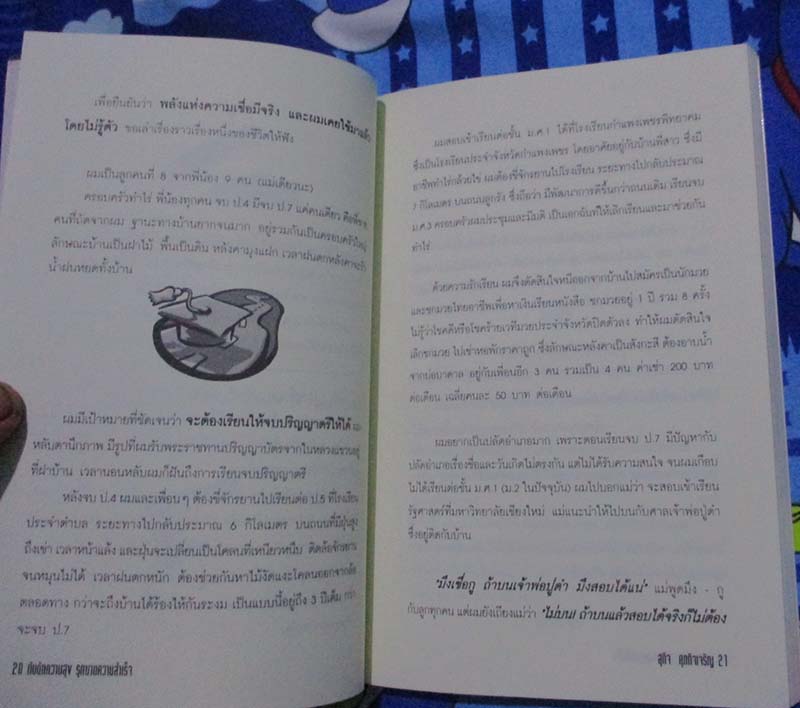 เพื่อยืนยันว่า พลังแห่งความเชื่อมีจริง และผมเคยใช้มาแล้ว
โดยไม่รู้ตัว ขอเล่าเรื่องราวเรื่องหนึ่งของชีวิตให้ฟัง
ผมเป็นลูกคนที่ 8 จากพี่น้อง 9 คน (แม่เดียวนะ)
ครอบครัวทำไร่ พี่น้องทุกคน จบ ป.4 มีจบ ป.7 แค่คนเดียว คือพี่ชาย
คนที่ถัดจากผม ฐานะทางบ้านยากจนมาก อยู่รวมกันเป็นครอบครัวใหญ่
ลักษณะบ้านเป็นฝาไม้ พื้นเป็นดิน หลังคามุงแฝก เวลาฝนตกหลังคาจะรั่ว
น้ำฝนหยดทั้งบ้าน
ผมมีเป้าหมายที่ชัดเจนว่า จะต้องเรียนให้จบปริญญาตรีให้ได้
หลับตานึกภาพ มีรูปที่ผมรับพระราชทานปริญญาบัตรจากในหลวงแขวนอยู่
ที่ฝาบ้าน เวลานอนหลับผมก็ฝันถึงการเรียนจบปริญญาตรี
หลังจบ ป.4 ผมและเพื่อนๆ ต้องขี่จักรยานไปเรียนต่อ ป.5 ที่โรงเรียน
ประจำตำบล ระยะทางไปกลับประมาณ 6 กิโลเมตร บนถนนที่มีฝุ่นสูง
ถึงเข่า เวลาหน้าแล้ง และฝุ่นจะเปลี่ยนเป็นโคลนที่เหนียวหนึบ ติดล้อจักรยาน
จนหมุนไม่ได้ เวลาฝนตกหนัก ต้องช่วยกันหาไม้งัดแงะโคลนออกจากล้อ
ตลอดทาง กว่าจะถึงบ้านได้ร้องไห้กันระงม เป็นแบบนี้อยู่ถึง 3 ปีเต็ม กว่า
จะจบ ป.7
20 กับดักความสุข รุกฆาตความสำเร็จ
ผมสอบเข้าเรียนต่อชั้น ม.ศ.1 ได้ที่โรงเรียนกำแพงเพชรพิทยาคม
ซึ่งเป็นโรงเรียนประจำจังหวัดกำแพงเพชร โดยอาศัยอยู่กับบ้านพี่สาว ซึ่งมี
อาชีพทำไร่กล้วยไข่ ผมต้องขี่จักรยานไปโรงเรียน ระยะทางไปกลับประมาณ
7 กิโลเมตร บนถนนลูกรัง ซึ่งถือว่า มีพัฒนาการดีขึ้นกว่าถนนเดิม เรียนจบ
ม.ศ.3 ครอบครัวผมประชุมและมีมติ เป็นเอกฉันท์ให้เลิกเรียนและมาช่วยกัน
ทำไร่
ด้วยความรักเรียน ผมจึงตัดสินใจหนีออกจากบ้านไปสมัครเป็นนักมวย
และชกมวยไทยอาชีพเพื่อหาเงินเรียนหนังสือ ชกมวยอยู่ 1 ปี รวม 8 ครั้ง
ไม่รู้ว่าโชคดีหรือโชคร้ายเวทีมวยประจำจังหวัดปิดตัวลง ทำให้ผมตัดสินใจ
เลิกชกมวย ไปเช่าหอพักราคาถูก ซึ่งลักษณะหลังคาเป็นสังกะสี ต้องอาบน้ำ
จากบ่อบาดาล อยู่กับเพื่อนอีก 3 คน รวมเป็น 4 คน ค่าเช่า 200 บาท
ต่อเดือน เฉลี่ยคนละ 50 บาท ต่อเดือน
ผมอยากเป็นปลัดอำเภอมาก เพราะตอนเรียนจบ ป.7 มีปัญหากับ
ปลัดอำเภอเรื่องชื่อและวันเกิดไม่ตรงกัน แต่ไม่ได้รับความสนใจ จนผมเกือบ
ไม่ได้เรียนต่อชั้น ม.ศ.1 (ม.2 ในปัจจุบัน) ผมไปบอกแม่ว่า จะสอบเข้าเรียน
รัฐศาสตร์ที่มหาวิทยาลัยเชียงใหม่ แม่แนะนำให้ไปบนกับศาลเจ้าพ่อปู่ดำ
ซึ่งอยู่ติดกับบ้าน
"มึงเชื่อกู ถ้าบนเจ้าพ่อปู่ดำ มึงสอบได้แน่" แม่พูดมึง - กู
กับลูกทุกคน แต่ผมยังเถียงแม่ว่า "ไม่บน! ถ้าบนแล้วสอบได้จริงก็ไม่ต้อง
สุกิจ 21